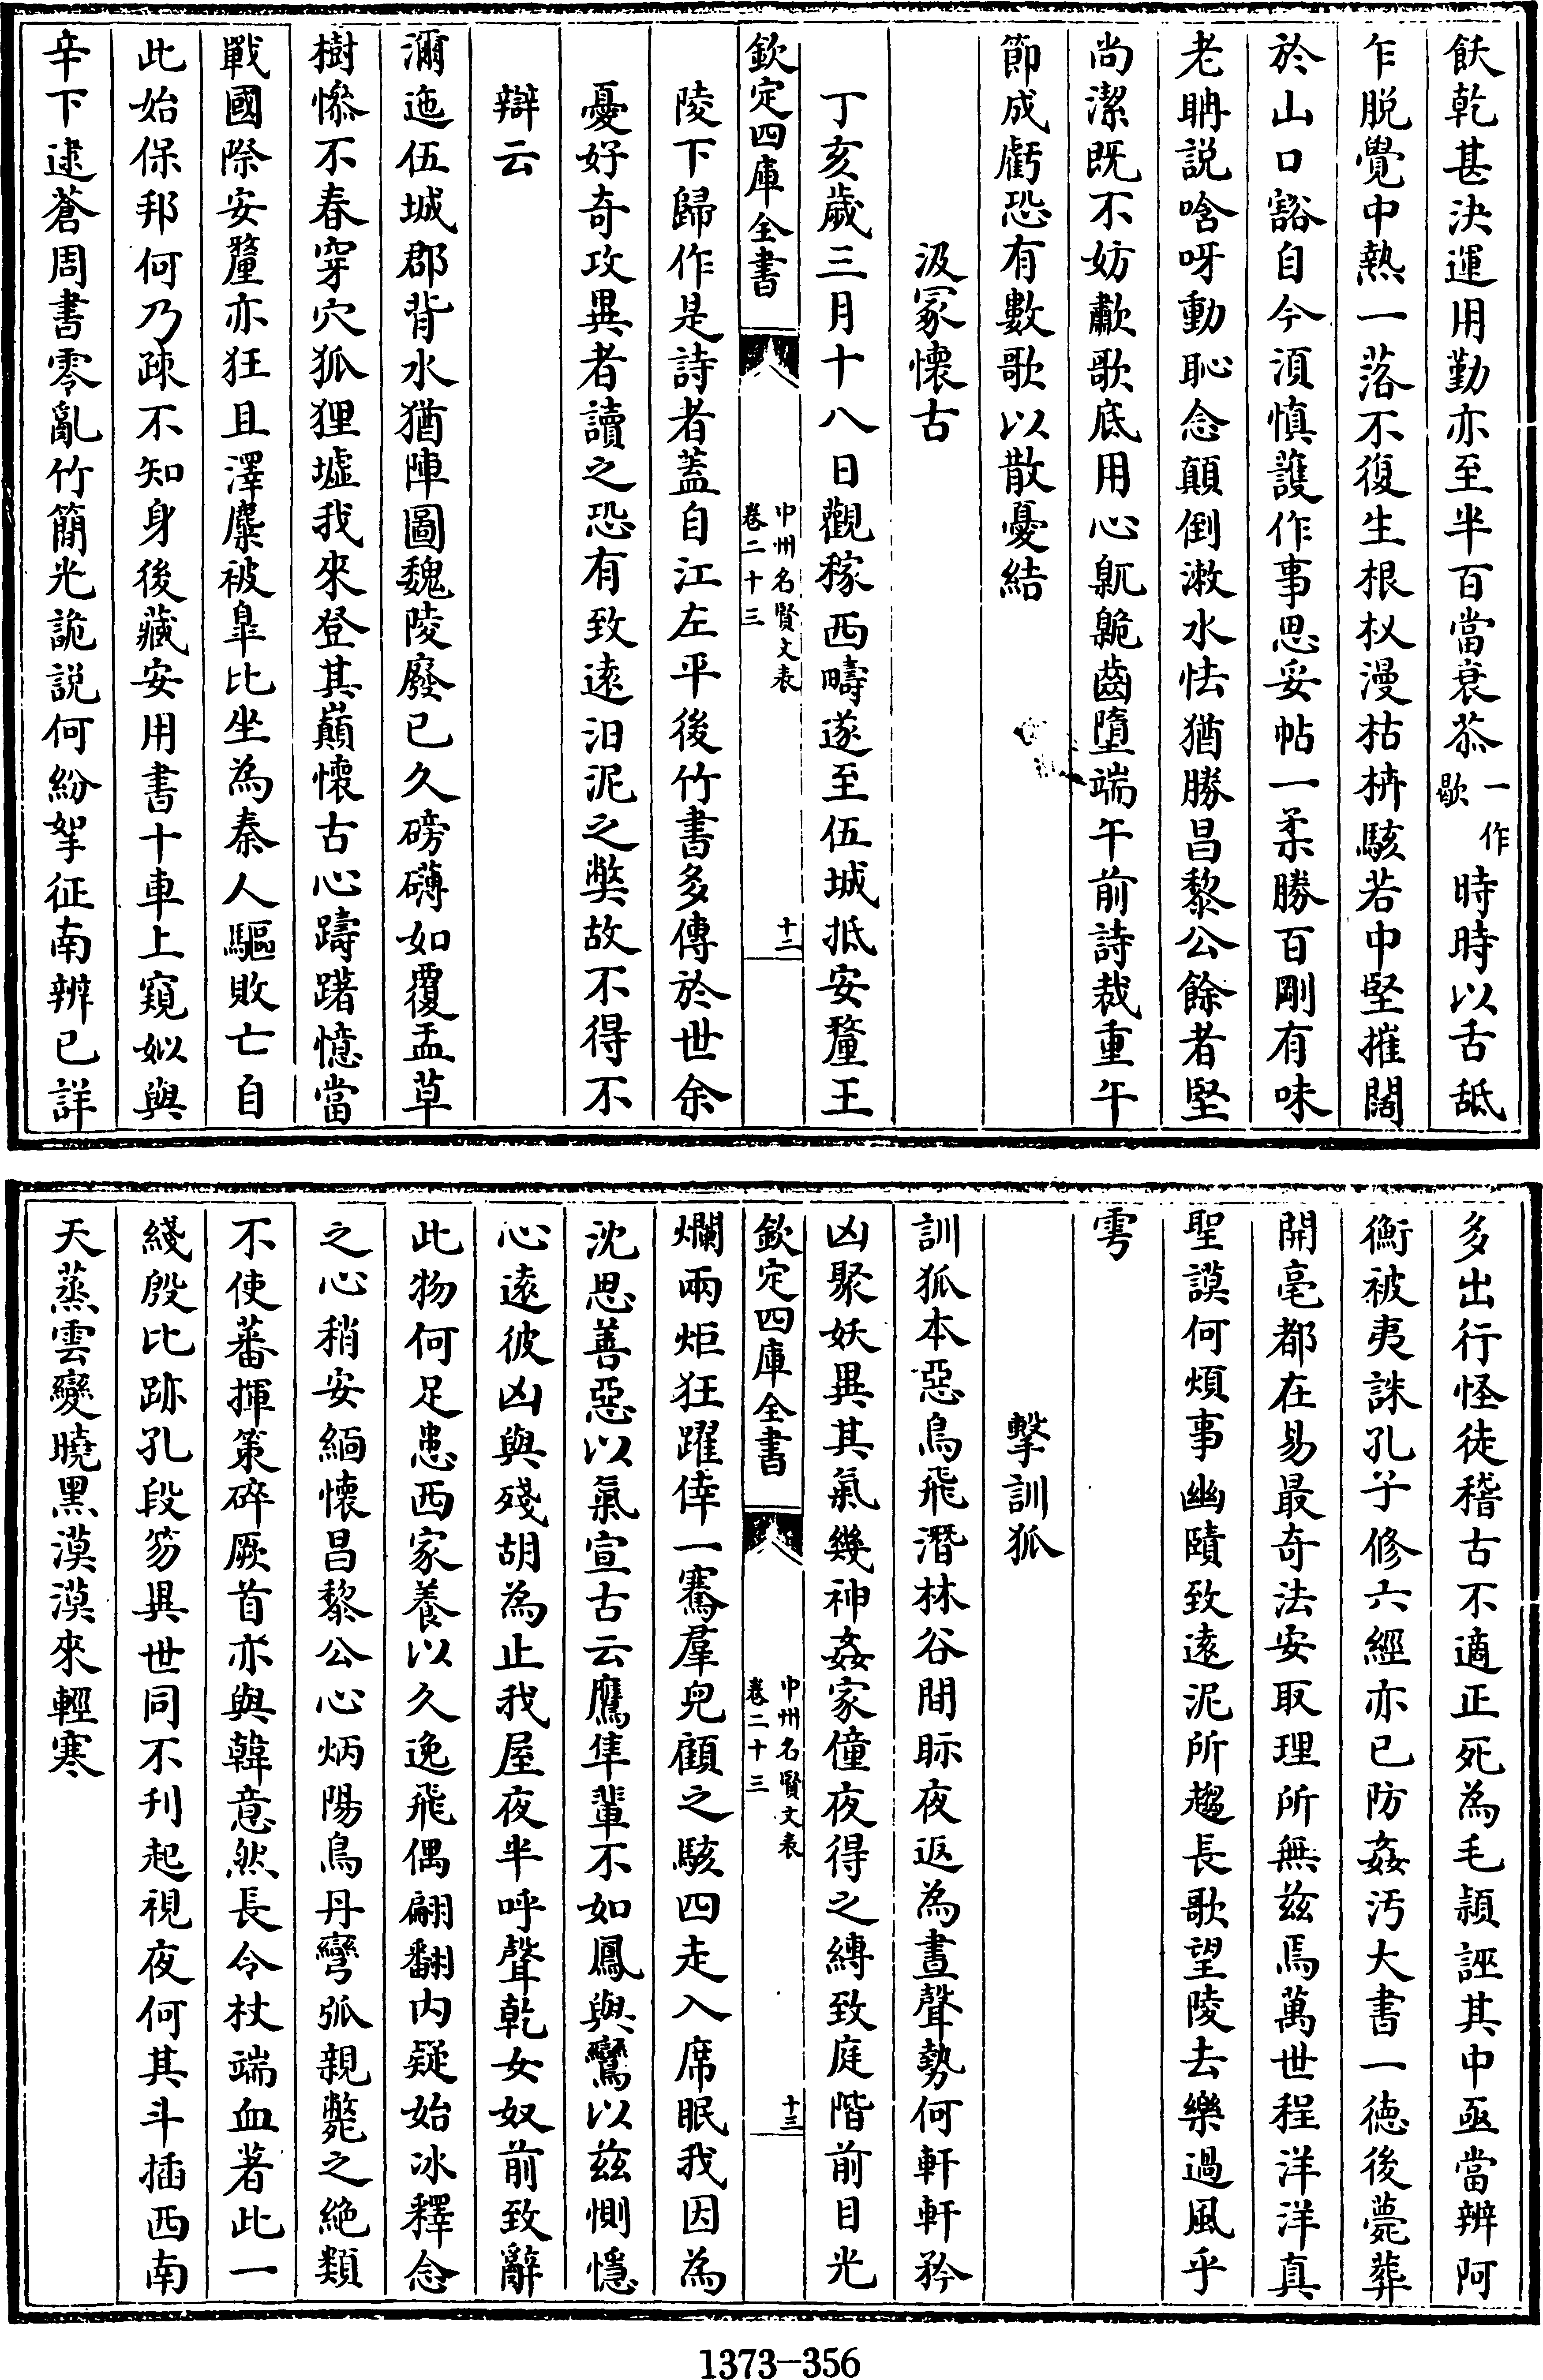 飫乾甚決運用勤亦至半百當衰苶一作歇時時以舌舐
乍脱覺中熱一落不復生根杈漫枯枿駭若中堅摧闊
於山口豁自今湏慎䕶作事思妥帖一柔勝百剛有味
老聃説唅呀動恥念顛倒漱水怯猶勝昌黎公餘者堅
尚潔既不妨歗歌底用心臲卼齒墮端午前詩裁重午
節成虧恐有數歌以散憂結
汲冢懷古
丁亥歲三月十八日觀稼西疇遂至伍城抵安釐王
欽定四庫全書
中州名賢文表
卷二十三
十二
陵下歸作是詩者蓋自江左平後竹書多傳於世余
憂好奇攻異者讀之恐有致遠汨泥之弊故不得不
辯云
濔迤伍城郡背水猶陣圖魏陵廢已久磅礴如覆盂草
樹慘不春穿穴狐狸墟我來登其巔懷古心躊躇憶當
戰國際安釐亦狂且澤麋被皐比坐為秦人驅敗亡自
此始保邦何乃疎不知身後藏安用書十車上窺姒與
辛下逮蒼周書零亂竹簡光詭説何紛挐征南辨已詳
多出行怪徒稽古不適正死為毛頴誣其中亟當辨阿
衡被夷誅孔子修六經亦已防姦汚大書一徳後薨葬
開亳都在易最奇法安取理所無兹焉萬世程洋洋真
聖謨何煩事幽賾致遠泥所趨長歌望陵去樂過風乎
雩
擊訓狐
訓狐本惡鳥飛潛林谷間眎夜返為晝聲勢何軒軒矜
凶聚妖異其氣幾神姦家僮夜得之縛致庭階前目光
欽定四庫全書
中州名賢文表
卷二十三
十三
爛兩炬狂躍倖一騫羣兒顧之駭四走入席眠我因為
沈思善惡以氣宣古云鷹隼輩不如鳳與鸞以兹惻隱
心遠彼凶與殘胡為止我屋夜半呼聲乾女奴前致辭
此物何足患西家養以久逸飛偶翩翻内疑始冰釋念
之心稍安緬懷昌黎公心炳陽烏丹彎弧親斃之絶類
不使蕃揮策碎厥首亦與韓意然長令杖端血著此一
綫殷比跡孔段笏異世同不刋起視夜何其斗插西南
天蒸雲變曉黑漠漠來輕寒
1373-356